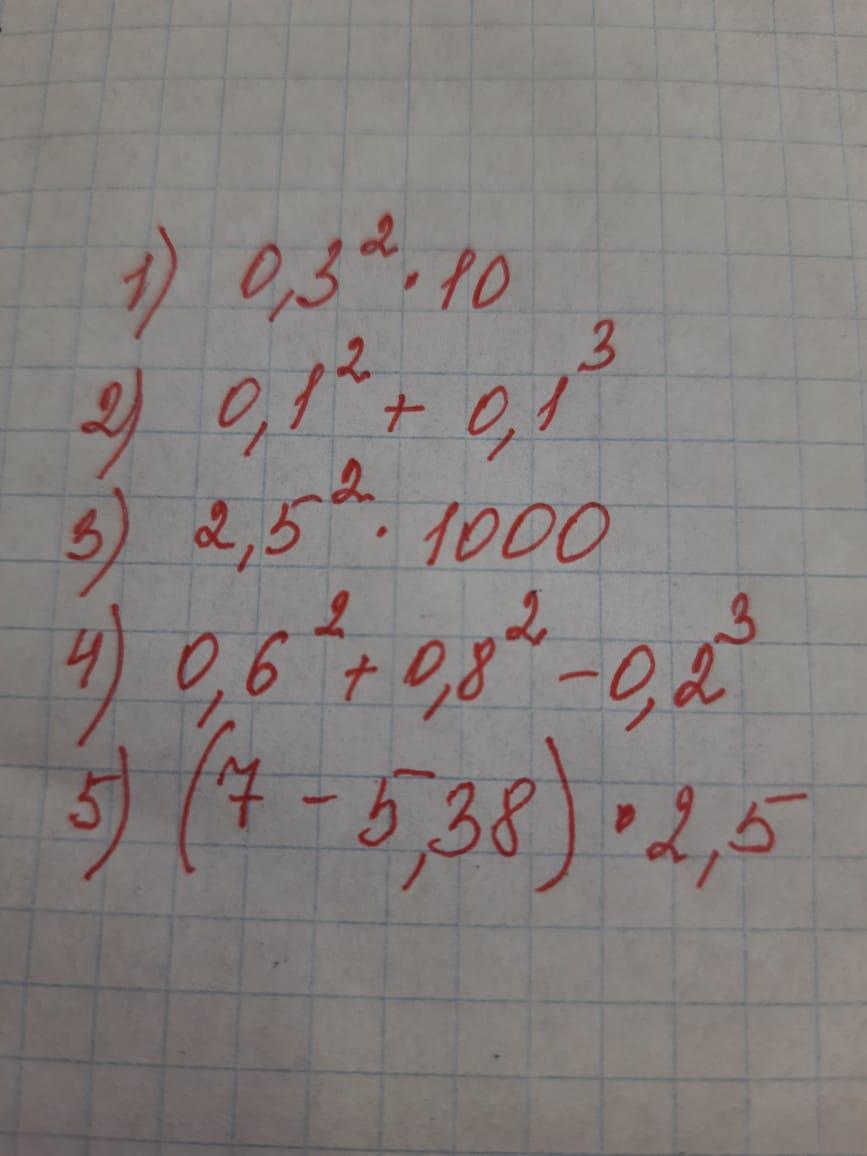 1) 0,3² · 10
2) 0,1² + 0,1³
3) 2,5² · 1000
4) 0,6² + 0,8² - 0,2³
5) (7 - 5,38) · 2,5